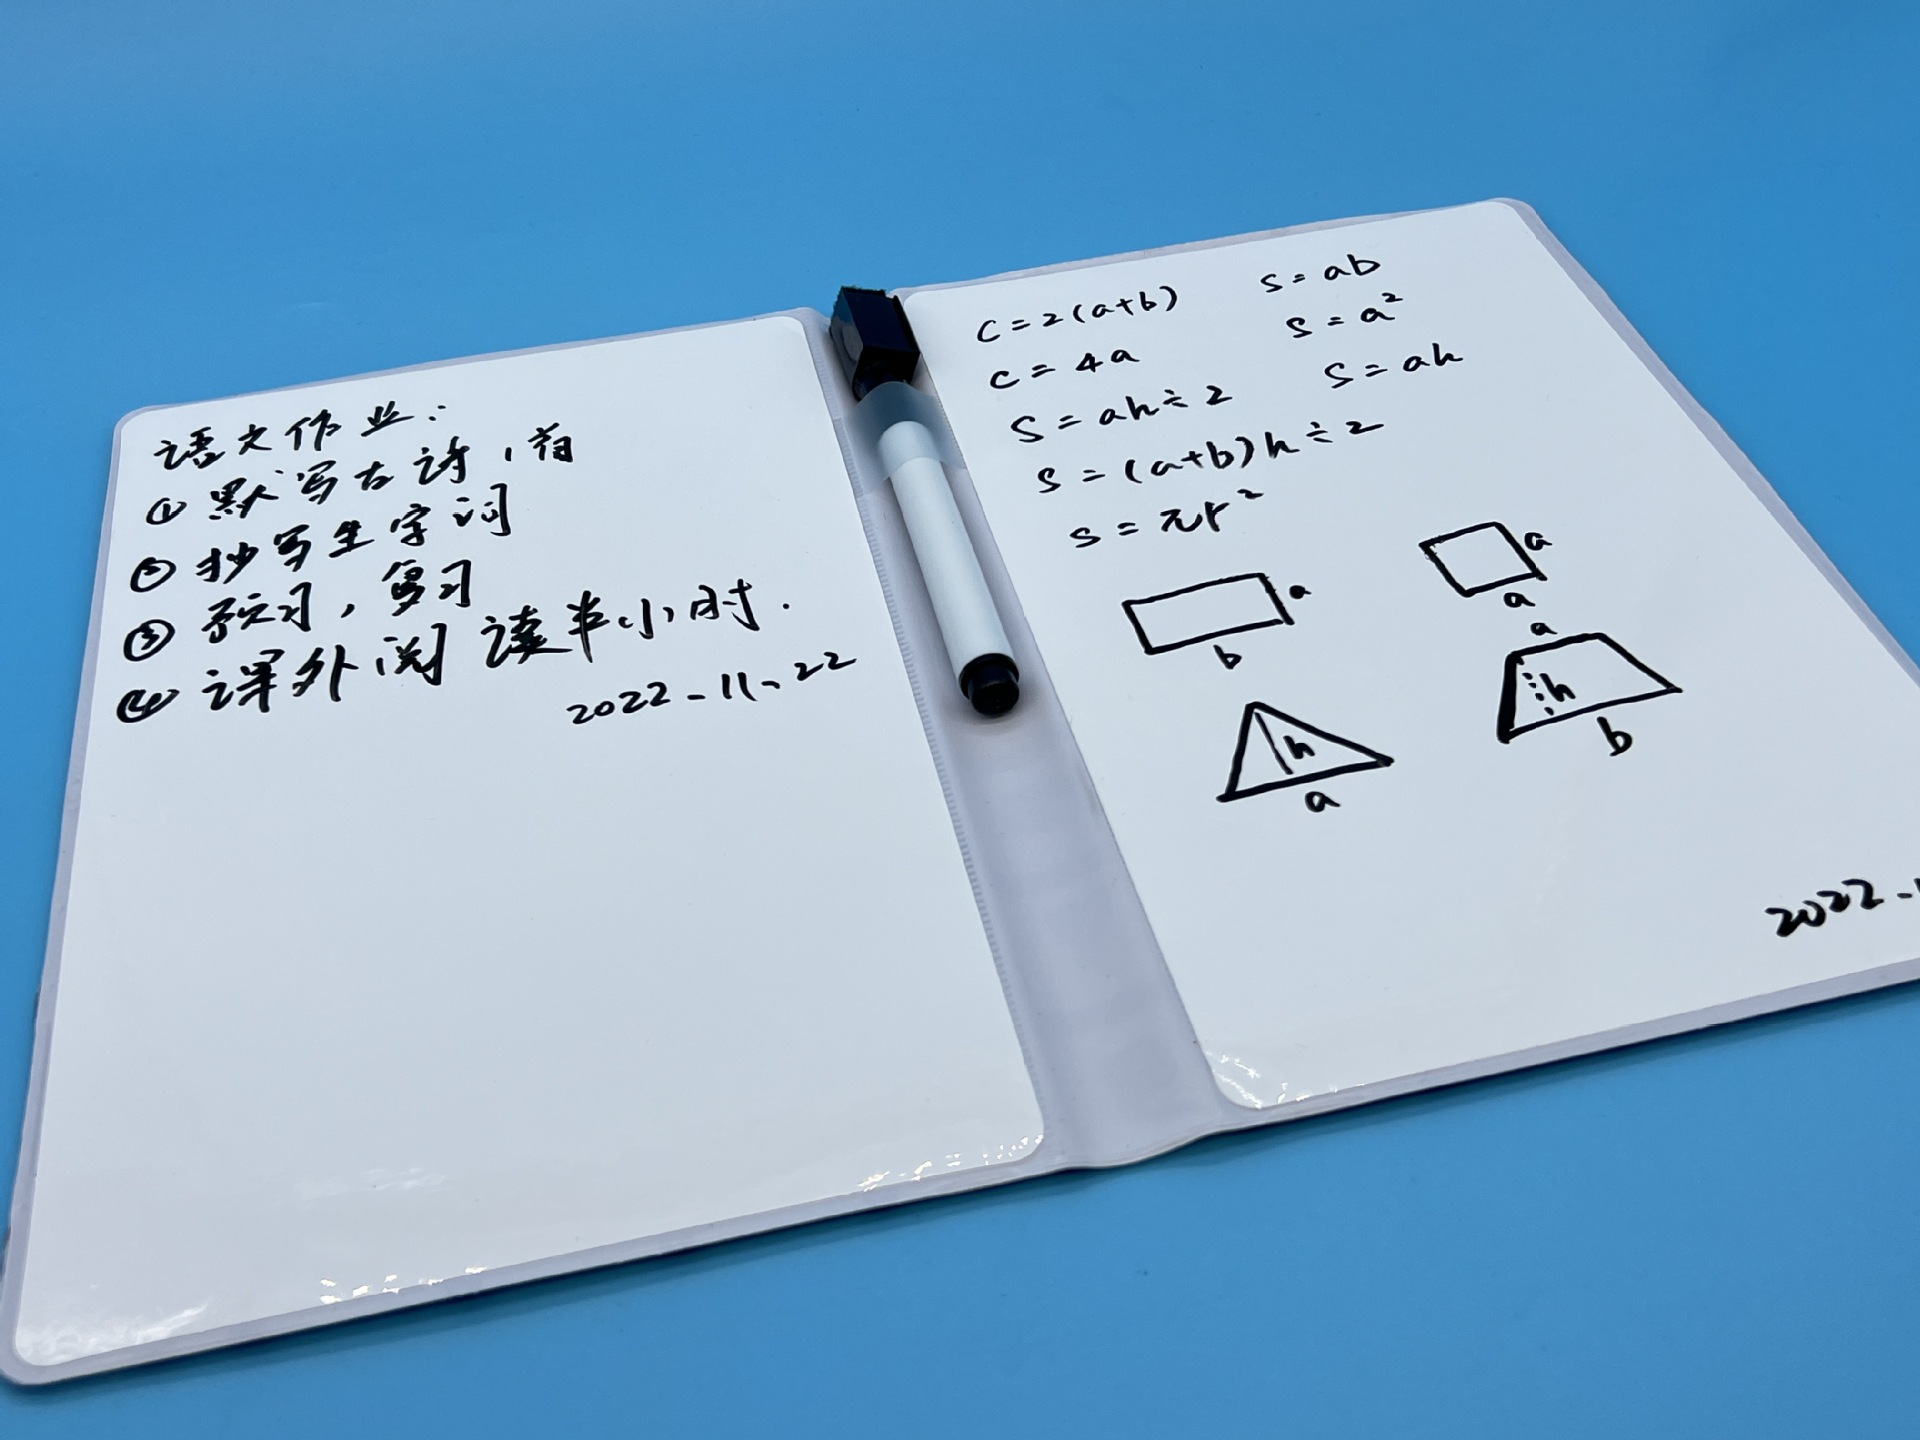 语文作业:
① 默写古诗,背
② 抄写生字词
③ 预习,复习
④ 课外阅读半小时.
2022-11.22
C=2(a+b) S=ab
C=4a S=a²
S=ah÷2 S=ah
S=(a+b)h÷2
S=πr²
a
b
a
a
h
a
a
h
b
2022-